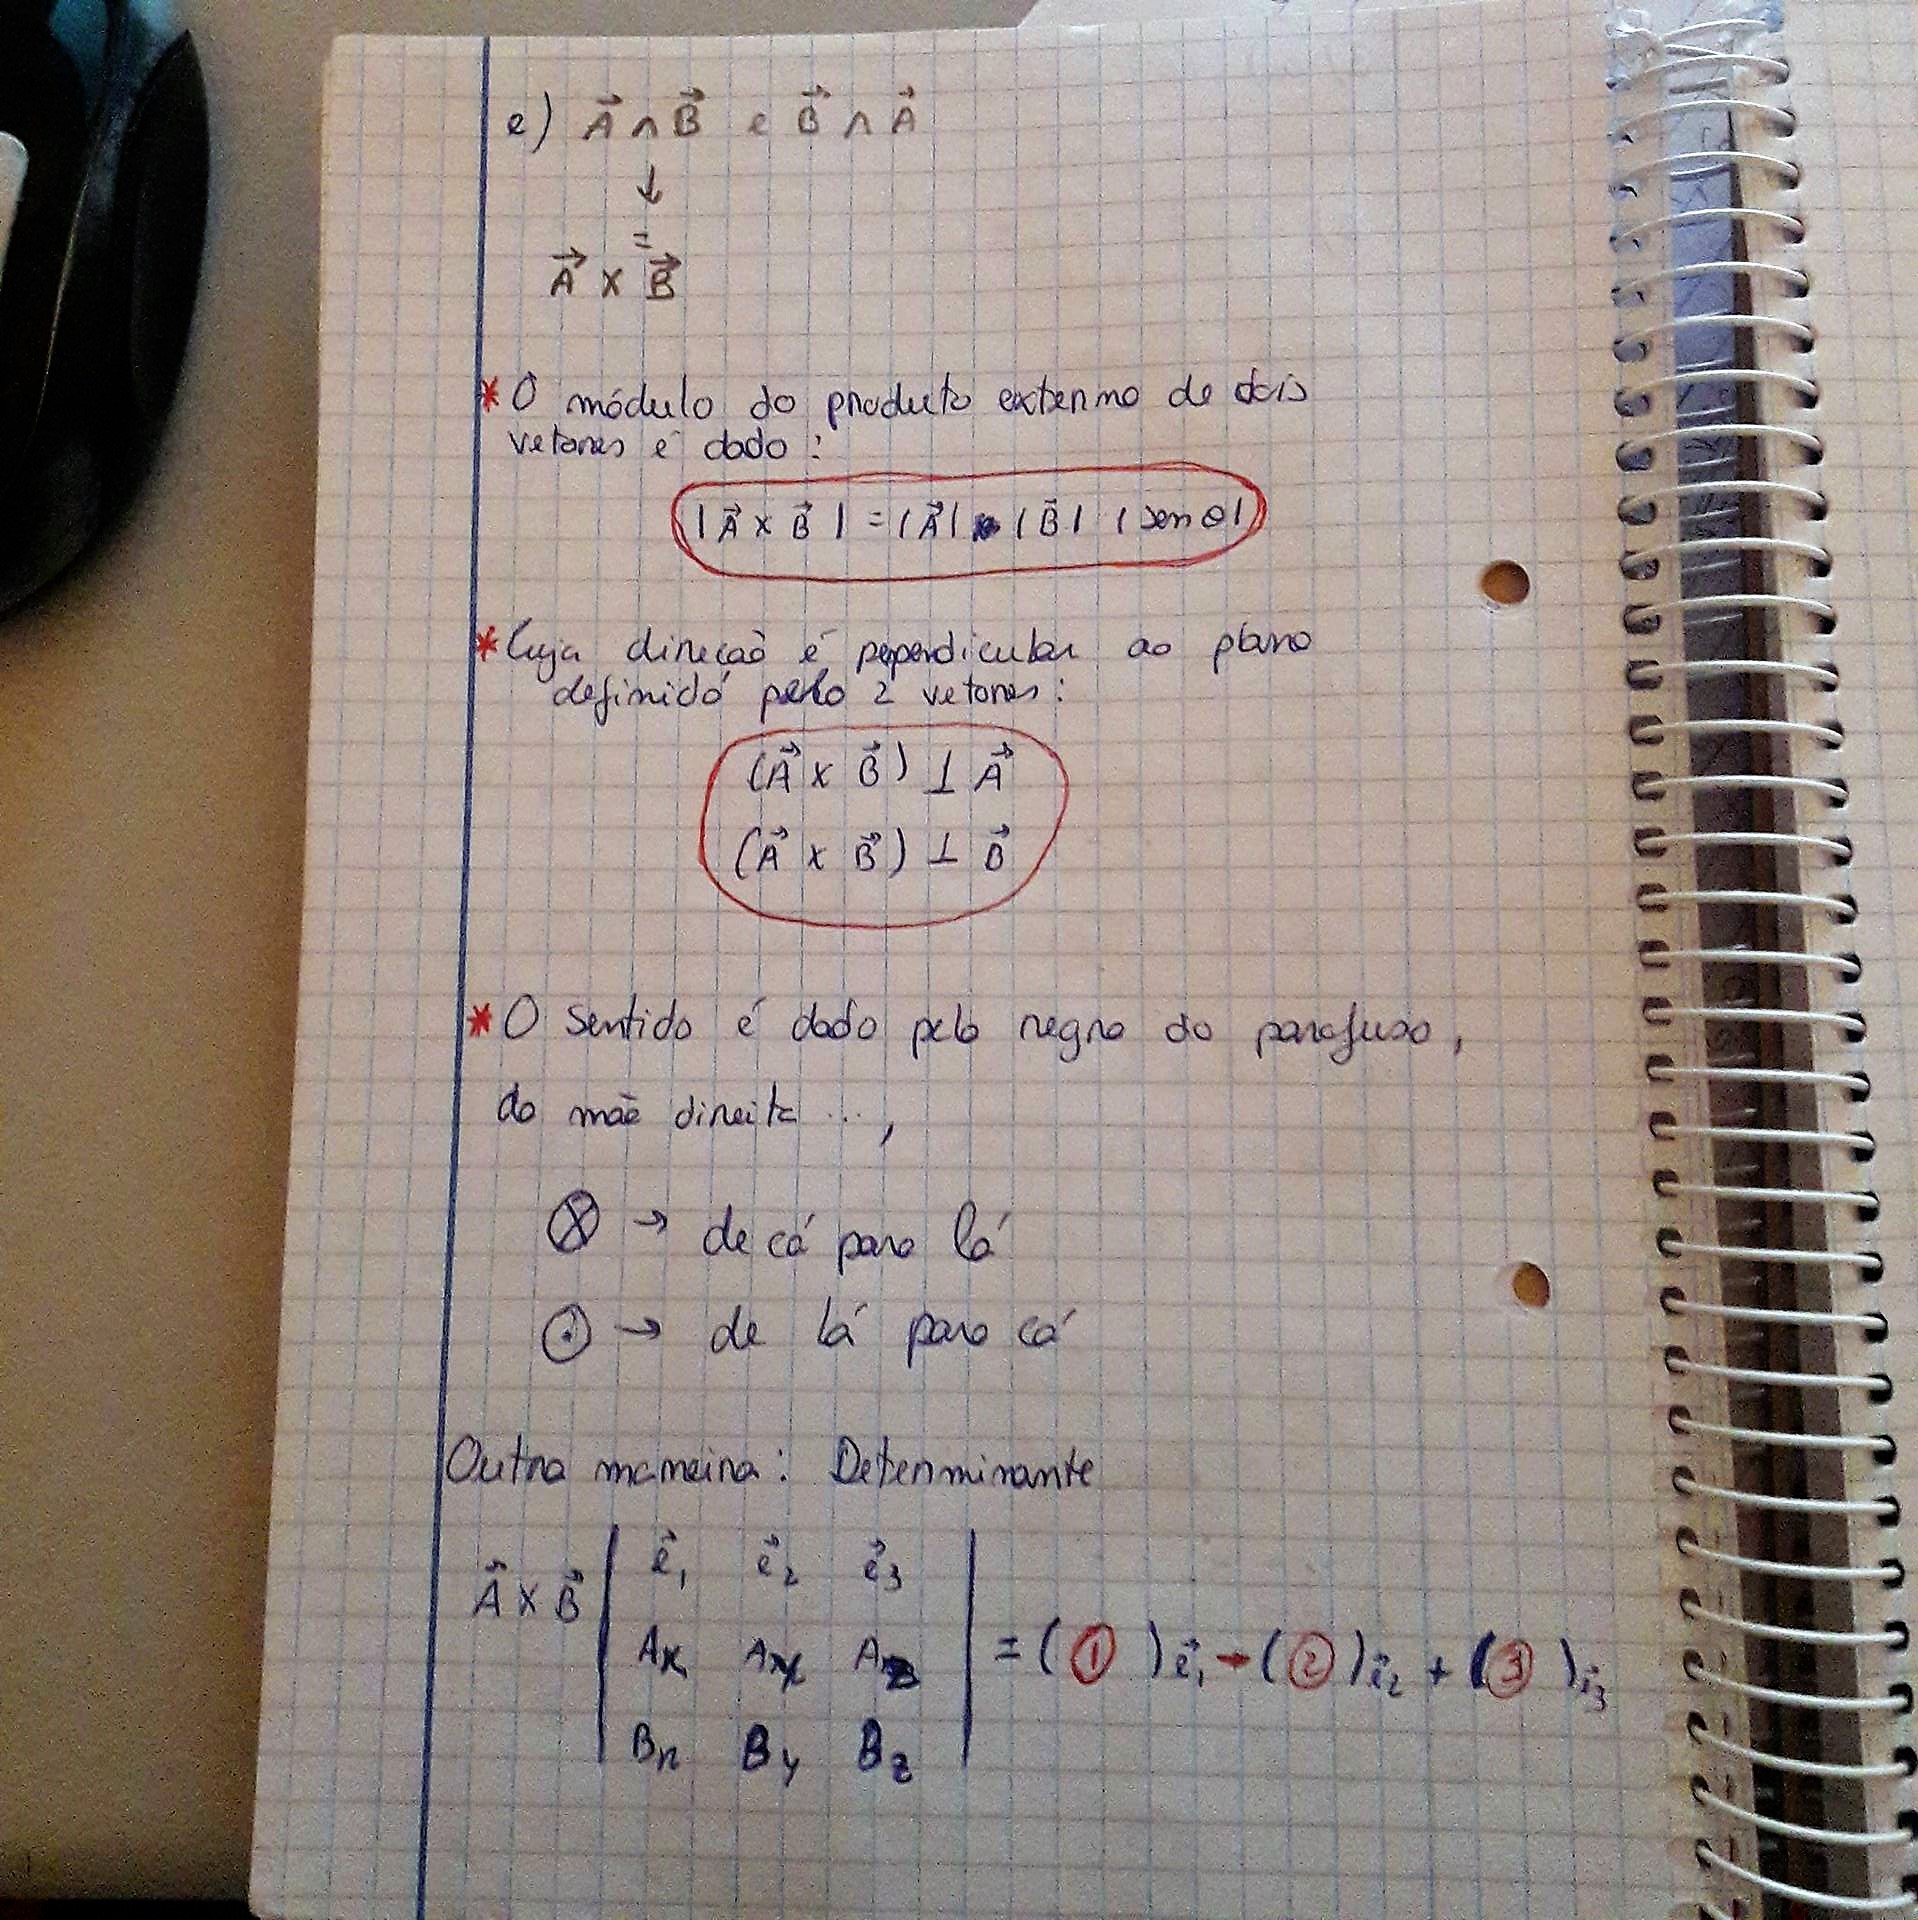 e) A⃗ ∧ B⃗ e B⃗ ∧ A⃗
↓
=
A⃗ x B⃗
* O módulo do produto externo de dois
vetores é dado :
|A⃗ x B⃗| = |A⃗| · |B⃗| |sen θ|
* Cuja direção é perpendicular ao plano
definido pelo 2 vetores :
(A⃗ x B⃗) ⊥ A⃗
(A⃗ x B⃗) ⊥ B⃗
* O sentido é dado pela regra do parafuso,
da mão direita ...,
⊗ → de cá para lá
⊙ → de lá para cá
Outra maneira : Determinante
A⃗ x B⃗ | e⃗₁ e⃗₂ e⃗₃ |
| Ax Ay Az | = ( ① ) e⃗₁ - ( ② ) e⃗₂ + ( ③ ) e⃗₃
| Bx By Bz |